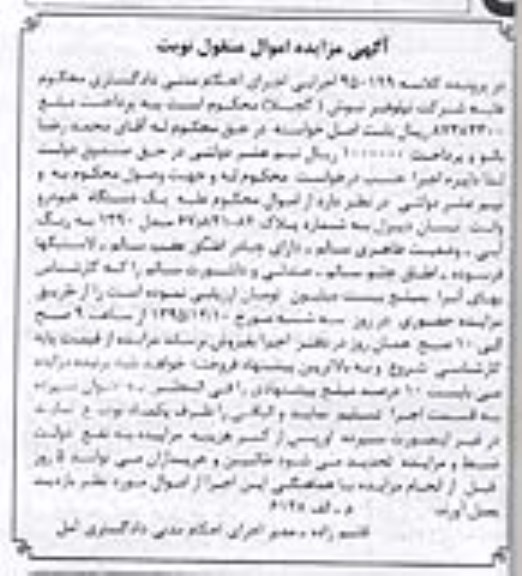 آگهی مزایده اموال منقول نوبت
در پرونده کلاسه ۹۵۰۱۹۹ اجرایی اجرای احکام مدنی دادگستری محکوم
علیه شرکت نیلوفر نبوش (کجلا) محکوم است به پرداخت مبلغ
ریال بابت اصل خواسته در حق محکوم له آقای محمد رضا
و پرداخت ۱۰۰۰۰۰۰ ریال نیم عشر دولتی در حق صندوق دولت
لذا دایره اجرا حسب درخواست محکوم له و جهت وصول محکوم به و
نیم عشر دولتی در نظر دارد از اموال محکوم علیه یک دستگاه خودرو
وانت نیسان دیزل به شماره پلاک مدل ۱۳۹۰ به رنگ
آبی ـ وضعیت ظاهری سالم ـ دارای چادر اطاق عقب سالم ـ لاستیکها
فرسوده ـ اطاق جلو سالم ـ صندلی و داشبورت سالم را که کارشناس
بهای آنرا بمبلغ بیست میلیون تومان ارزیابی نموده است را از طریق
مزایده حضوری در روز سه شنبه مورخ ۱۳۹۵/۱۲/۱۰ از ساعت ۹ صبح
الی ۱۰ صبح همان روز در دفتر اجرا بفروش برساند مزایده از قیمت پایه
کارشناسی شروع و به بالاترین پیشنهاد فروخته خواهد شد برنده مزایده
می بایست ۱۰ درصد مبلغ پیشنهادی را فی المجلس به عنوان سپرده
به قسمت اجرا تسلیم نمایند و الباقی را ظرف یکماه تودیع نمایند
در غیر اینصورت سپرده اولیس از کسر هزینه مزایده به نفع دولت
ضبط و مزایده تجدید می شود طالبین و خریداران می توانند ۵ روز
قبل از انجام مزایده با هماهنگی این اجرا از اموال مورد نظر بازدید
بعمل آورند م ـ الف ۶۱۲۸
قاسم زاده ـ مدیر اجرای احکام مدنی دادگستری آمل